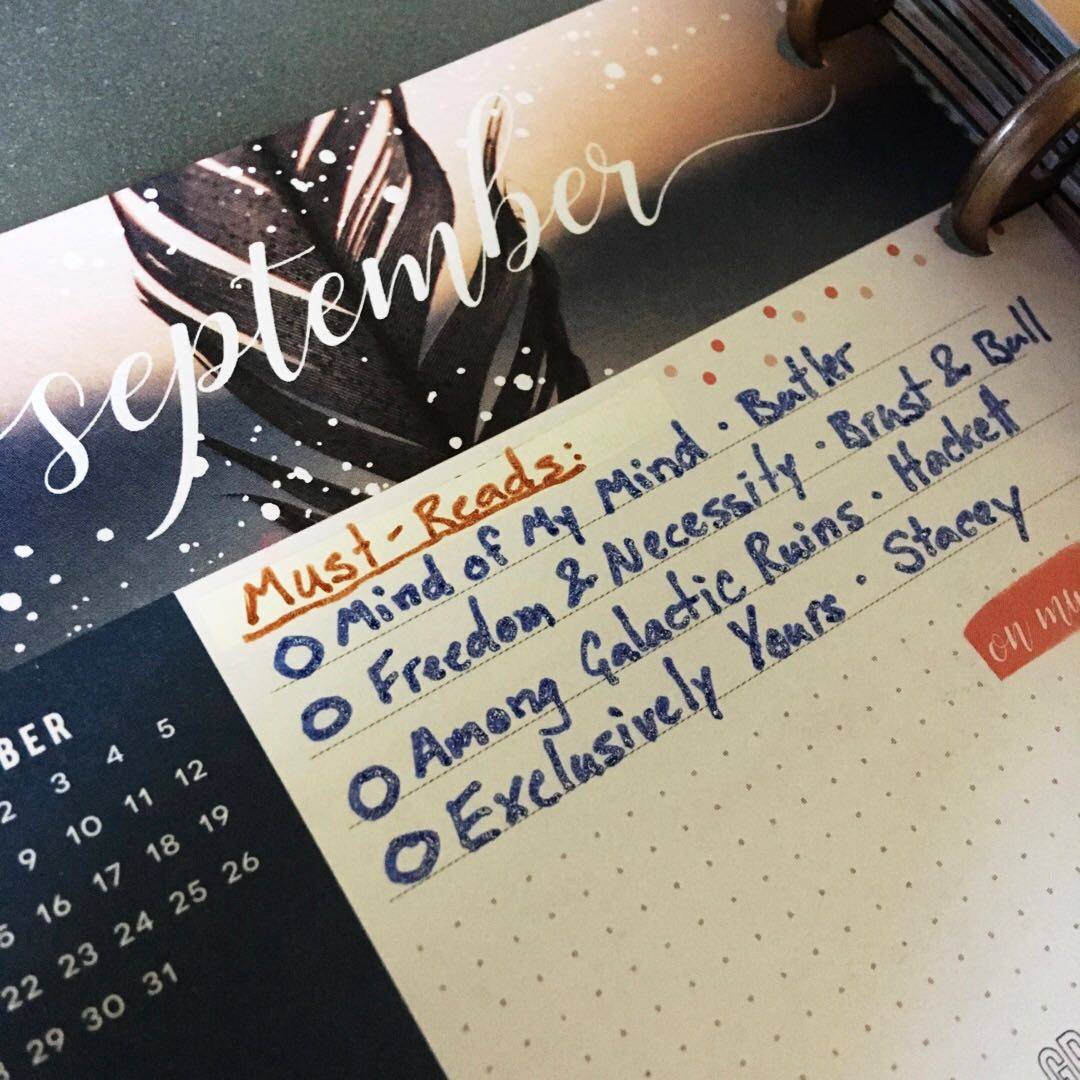 september
Must-Reads:
Mind of My Mind · Butler
Freedom & Necessity · Brust & Bull
Among Galactic Ruins · Hackett
Exclusively Yours · Stacey
on my
BER
2 3 4 5
9 10 11 12
16 17 18 19
22 23 24 25 26
29 30 31